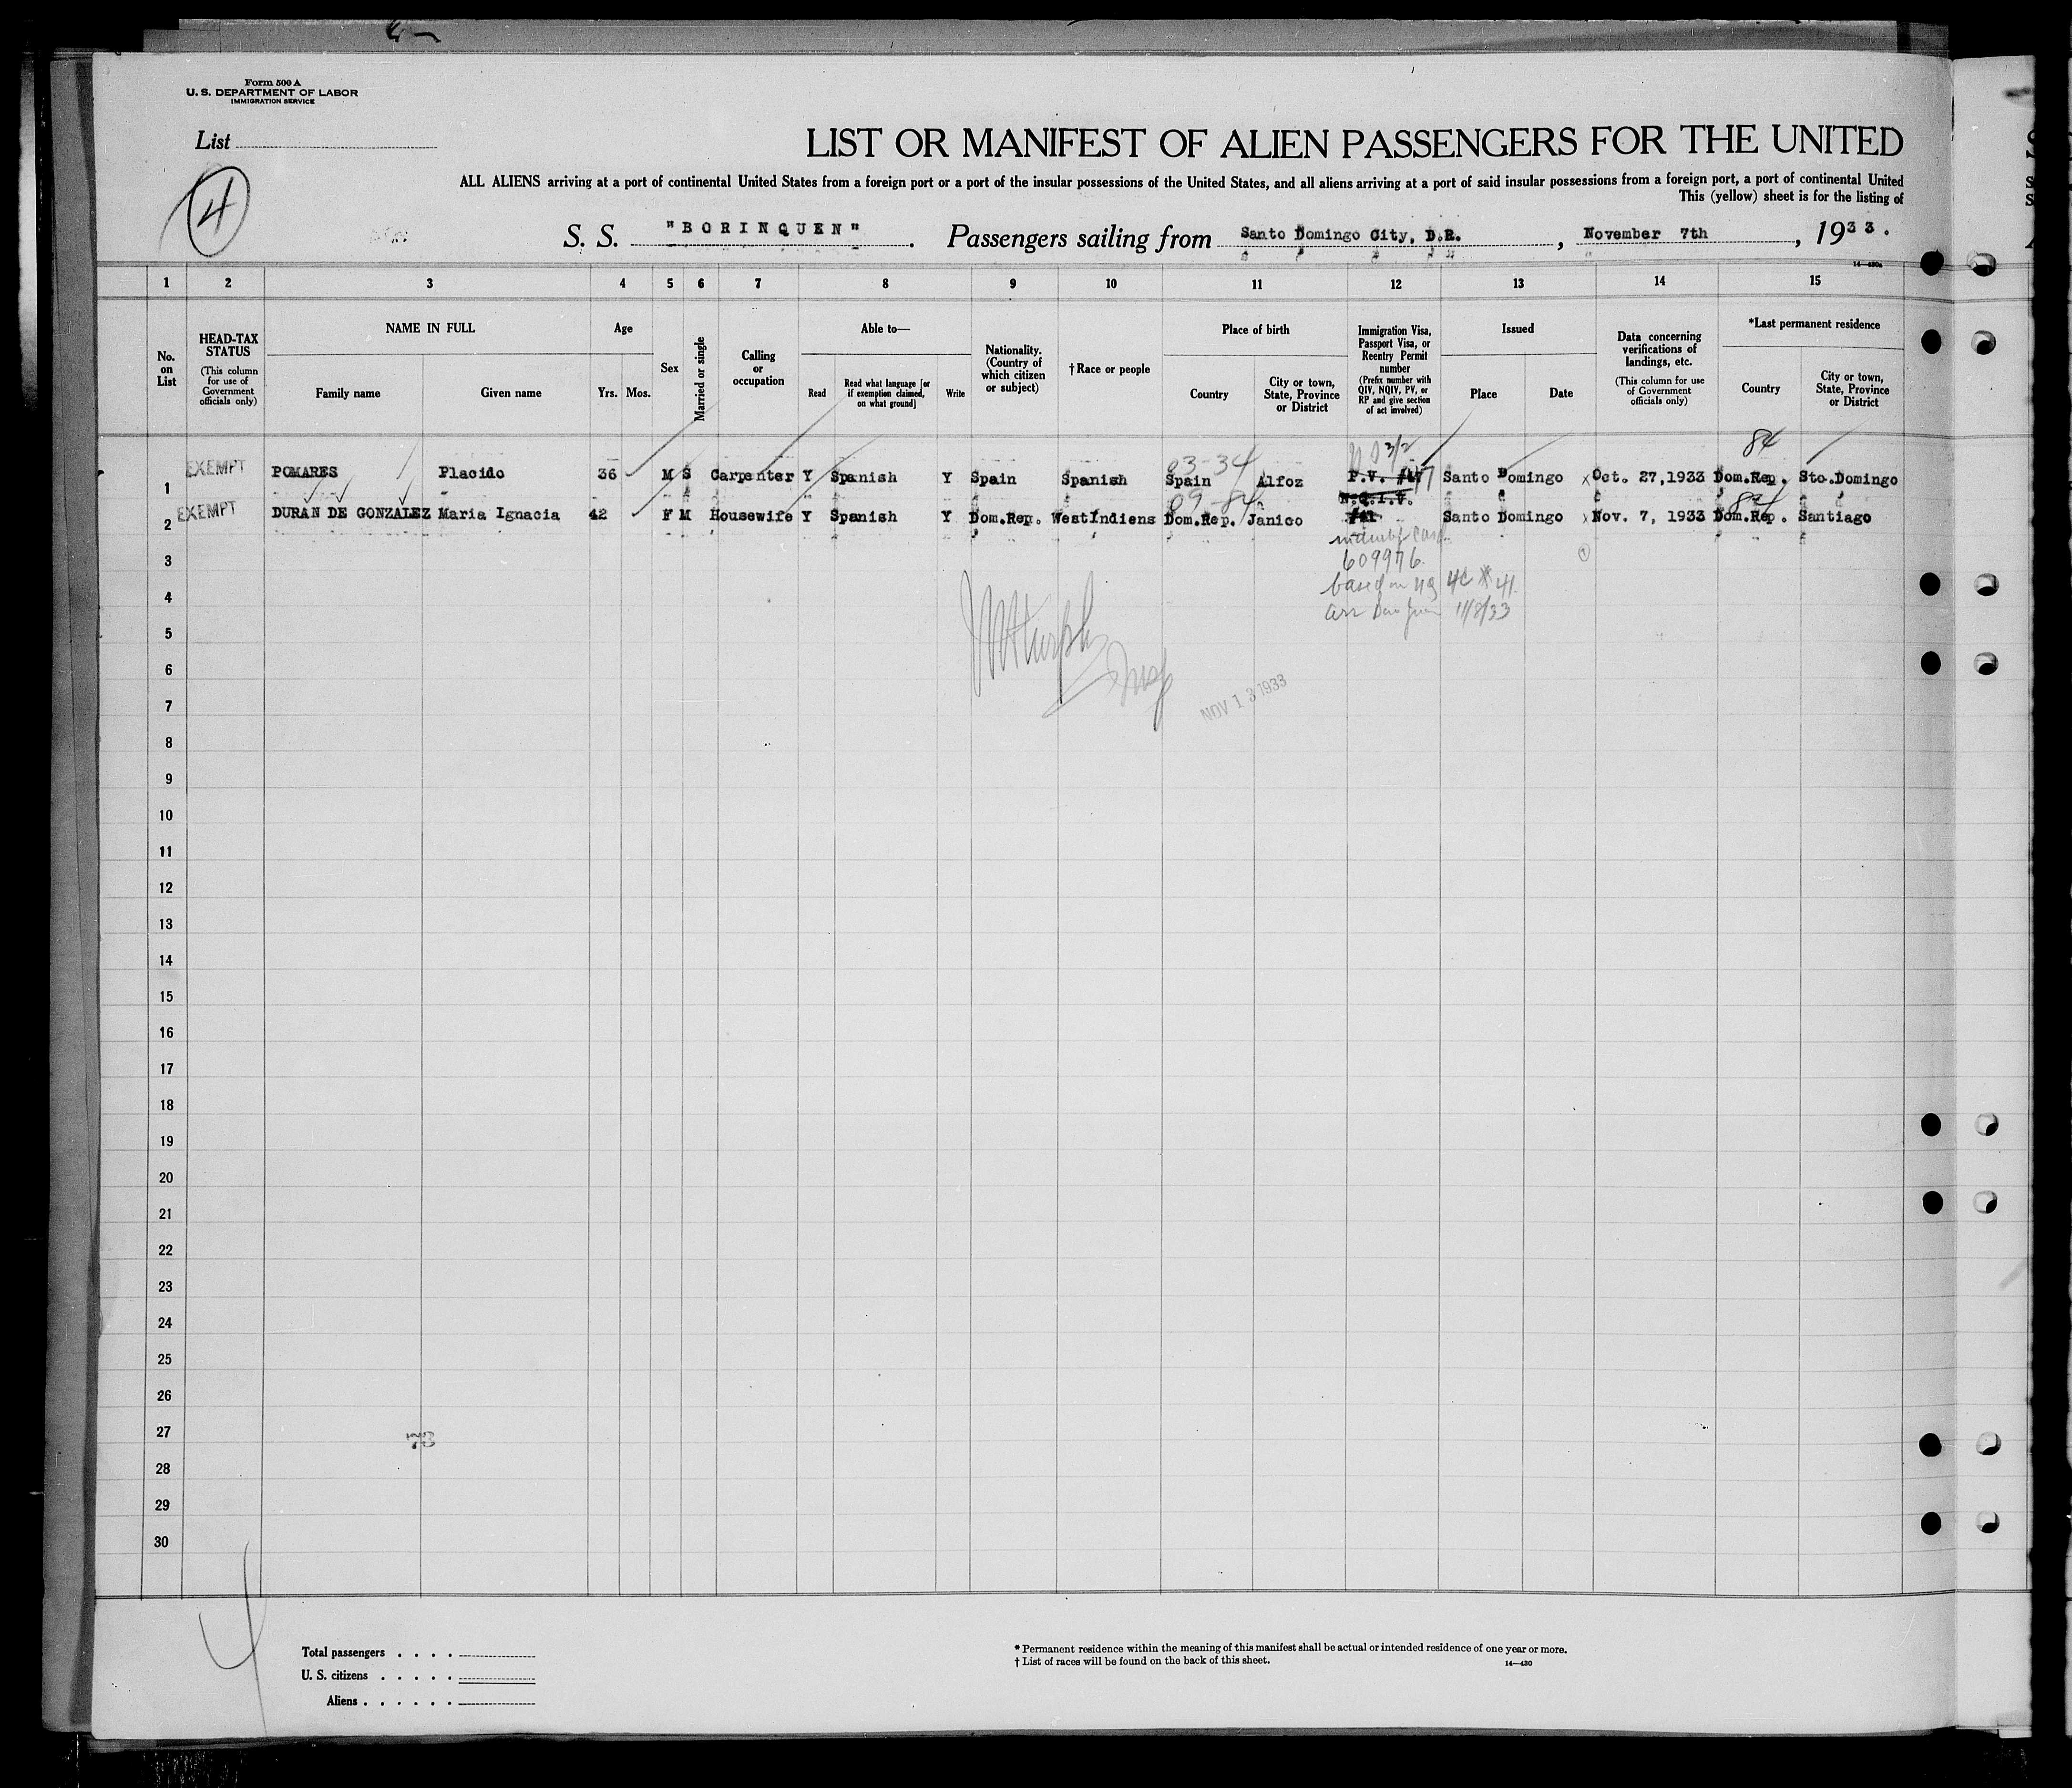 Form 500 A
U. S. DEPARTMENT OF LABOR
IMMIGRATION SERVICE
List
4
LIST OR MANIFEST OF ALIEN PASSENGERS FOR THE UNITED
ALL ALIENS arriving at a port of continental United States from a foreign port or a port of the insular possessions of the United States, and all aliens arriving at a port of said insular possessions from a foreign port, a port of continental United
This (yellow) sheet is for the listing of
S. S. "BORINQUEN". Passengers sailing from Santo Domingo City, D.R., November 7th, 1933.
14—430a
1 2 3 4 5 6 7 8 9 10 11 12 13 14 15
No. on List
HEAD-TAX STATUS (This column for use of Government officials only)
NAME IN FULL
Family name Given name
Age
Yrs. Mos.
Sex
Married or single
Calling or occupation
Able to—
Read Read what language [or if exemption claimed, on what ground] Write
Nationality. (Country of which citizen or subject)
†Race or people
Place of birth
Country City or town, State, Province or District
Immigration Visa, Passport Visa, or Reentry Permit number (Prefix number with QIV, NQIV, PV, or RP and give section of act involved)
Issued
Place Date
Data concerning verifications of landings, etc. (This column for use of Government officials only)
*Last permanent residence
Country City or town, State, Province or District
3/2 84
03-34
1 EXEMPT POMARES Placido 36 M S Carpenter Y Spanish Y Spain Spanish Spain Alfoz P.V. 47 Santo Domingo Oct. 27,1933 Dom.Rep. Sto.Domingo
09-84 N.Q.I.V. 84
2 EXEMPT DURAN DE GONZALEZ Maria Ignacia 42 F M Housewife Y Spanish Y Dom.Rep. WestIndiens Dom.Rep. Janico #41 Santo Domingo Nov. 7, 1933 Dom.Rep. Santiago
3
609976
4
based on 4C # 41
arr San Juan 11/8/33
5
6
Insp
7
NOV 13 1933
8
9
10
11
12
13
14
15
16
17
18
19
20
21
22
23
24
25
26
27
73
28
29
30
4
Total passengers . . . .
U. S. citizens . . . . .
Aliens . . . . . .
* Permanent residence within the meaning of this manifest shall be actual or intended residence of one year or more.
† List of races will be found on the back of this sheet.
14—430